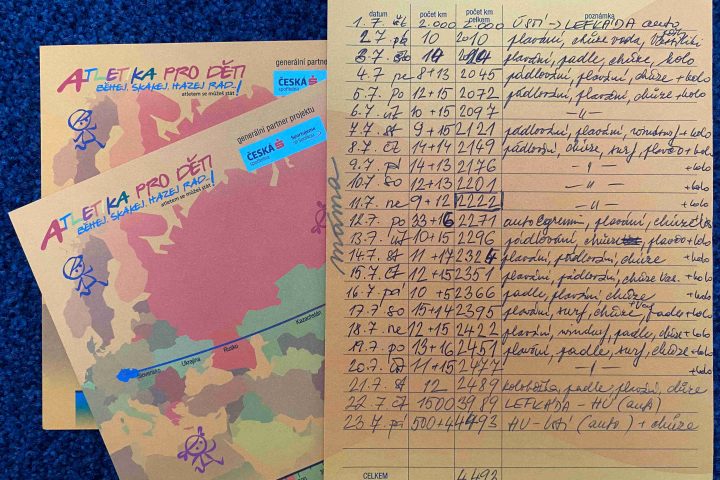 ATLETIKA PRO DĚTI
BĚHEJ, SKÁKEJ, HÁZEJ RÁD...!
atletem se můžeš stát
generální partner
ČESKÁ
spořitelna
ATLETIKA PRO DĚTI
BĚHEJ, SKÁKEJ, HÁZEJ RÁD...!
atletem se můžeš stát
generální partner projektu
ČESKÁ
spořitelna
Kazachstán
Rusko
Ukrajina
Slovensko
máma
datum počet km počet km celkem poznámka
1.7. čt 2.000 2.000 ÚSTÍ -> LEFKÁDA auto
2.7. pá 10 2010 plavání, chůze voda,
3.7. so 14 plavání, padle, chůze, kolo
4.7. ne 8+13 2045 pádlování, plavání, chůze + kolo
5.7. po 12+15 2072 pádlování, plavání, chůze + kolo
6.7. út 10+15 2097 -"-
7.7. st 9+15 2121 pádlování, plavání, windsurf + kolo
8.7. čt 14+14 2149 pádlování, chůze, surf, + kolo
9.7. pá 14+13 2176 -"- + kolo
10.7. so 12+13 2201 -"- + kolo
11.7. ne 9+12 2222 -"- + kolo
12.7. po 33+16 2271 auto Egremni, plavání, chůze
13.7. út 10+15 2296 pádlování, + kolo
14.7. st 11+17 2324 plavání, pádlování, chůze + kolo
15.7. čt 12+15 2351 plavání, pádlování, chůze Vas. + kolo
16.7. pá 10+5 2366 padle, plavání, chůze
17.7. so 15+14 2395 plavání, surf, chůze, padle + kolo
18.7. ne 12+15 2422 plavání, windsurf, padle, chůze + kolo
19.7. po 13+16 2451 plavání, padle, surf, chůze + kolo
20.7. út 11+15 2477 -"- + kolo
21.7. st 12 2489 koloběžka, padle, plavání, chůze
22.7. čt 1500 3989 LEFKÁDA - HU (auto)
23.7. pá 500+4 4493 HU - ÚSTÍ (auto) + chůze
CELKEM 4493